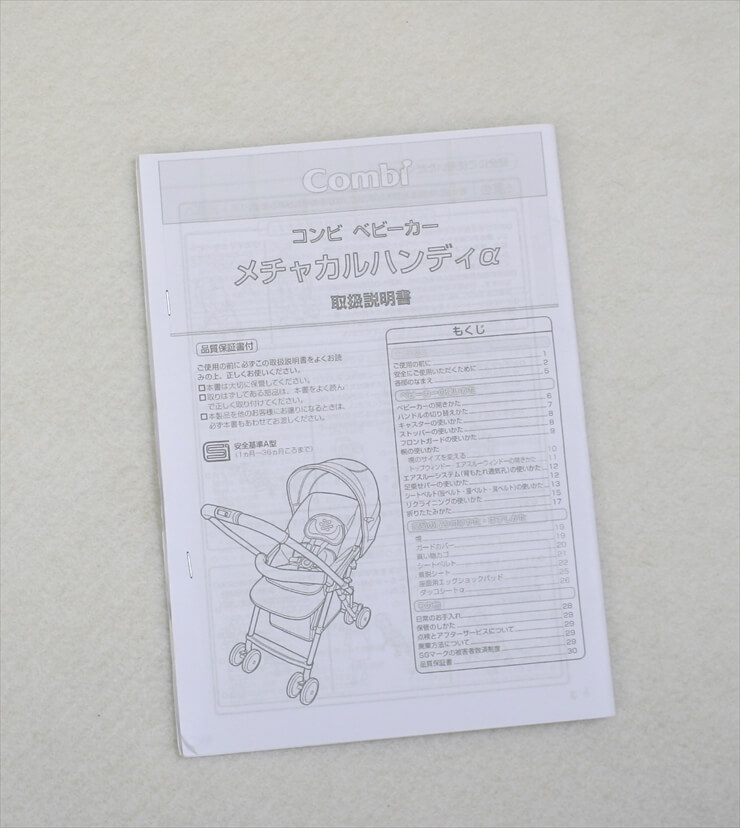 Combi
コンビ ベビーカー
メチャカルハンディα
取扱説明書
品質保証書付
ご使用の前に必ずこの取扱説明書をよくお読
みの上、正しくお使いください。
□本書は大切に保管してください。
□取りはずしてある部品は、本書をよく読ん
で正しく取り付けてください。
□本製品を他のお客様にお譲りになるときは、
必ず本書もあわせてお渡しください。
安全基準A型
(1ヵ月〜36ヵ月ころまで)
もくじ
ご使用の前に 1
安全にご使用いただくために 2
各部のなまえ 5
ベビーカーの開きかた 6
ハンドルの切り替えかた 7
キャスターの使いかた 8
ストッパーの使いかた 8
フロントガードの使いかた 9
幌の使いかた
幌のサイズを変える 10
トップウィンドー・エアスルーウィンドーの開きかた 11
エアスルーシステム(背もたれ通気孔)の使いかた 12
足乗せバーの使いかた 12
シートベルト(股ベルト・腰ベルト・肩ベルト)の使いかた 13
リクライニングの使いかた 15
折りたたみかた 17
幌 18
ガードカバー 19
買い物カゴ 20
シートベルト 21
着脱シート 22
座面用エッグショックパッド 25
ダッコシートα 26
日常のお手入れ 28
保管のしかた 29
点検とアフターサービスについて 29
廃棄方法について 29
SGマークの被害者救済制度 29
品質保証書 30